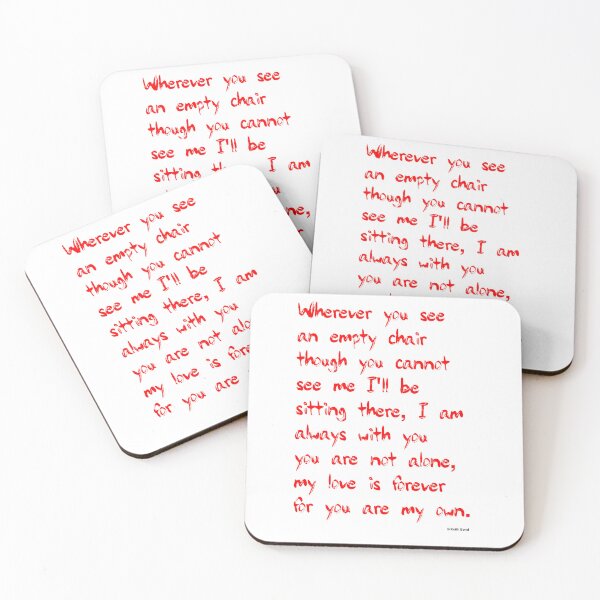 Wherever you see
an empty chair
though you cannot
see me I'll be
I am
Wherever you see
an empty chair
though you cannot
see me I'll be
sitting there, I am
always with you
you are not alone,
Wherever you see
an empty chair
though you cannot
see me I'll be
sitting there, I am
always with you
you are not
my love is
for you are
Wherever you see
an empty chair
though you cannot
see me I'll be
sitting there, I am
always with you
you are not alone,
my love is forever
for you are my own.